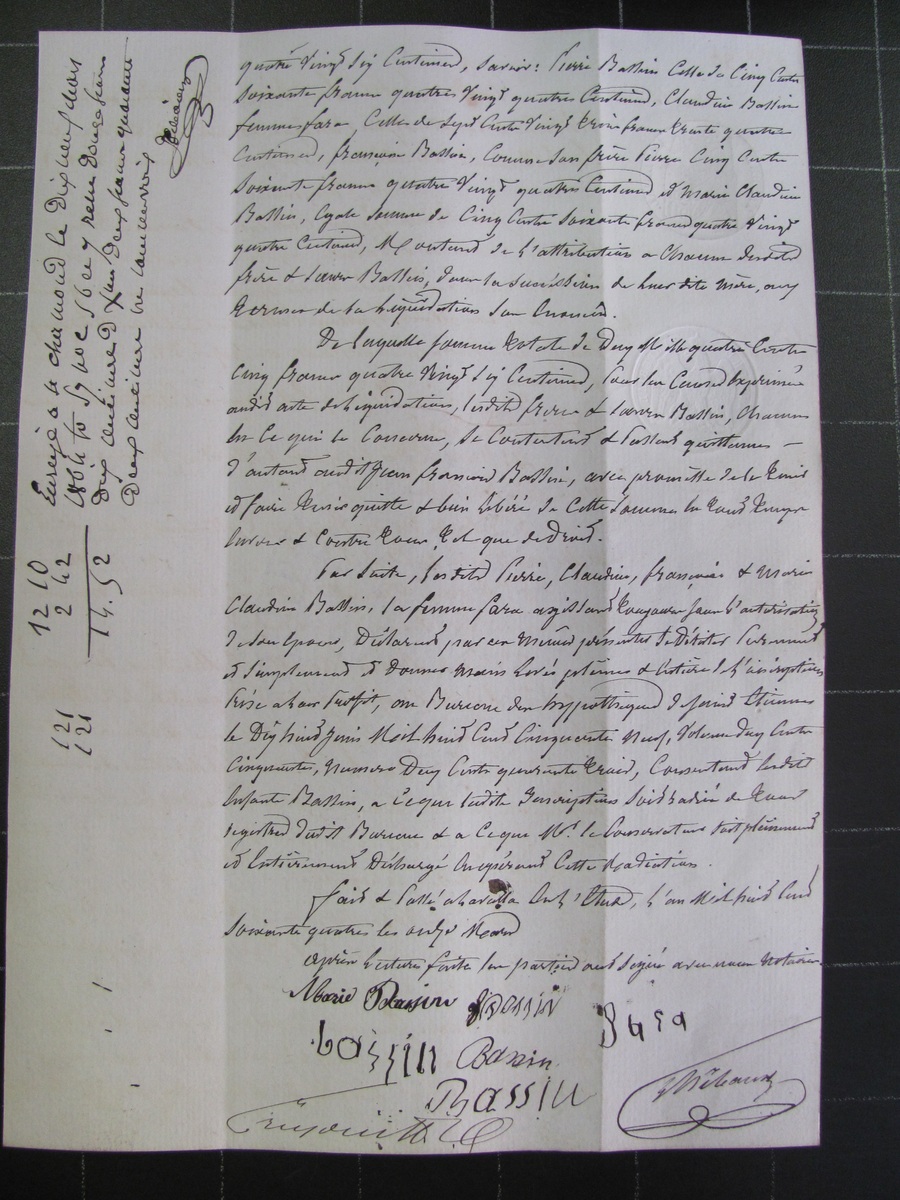 quatre Vingt Six Centimes, Savoir: Pierre Bassin Celle de Cinq Cents
Soixante francs quatre Vingt quatre Centimes, Claudine Bassin
femme fara, Celle de Sept Cents Vingt trois francs trente quatre
Centimes, françoise Bassin, Comme Son frère Pierre Cinq Cents
Soixante francs quatre Vingt quatre Centimes et Marie Claudine
Bassin, égale Somme de Cinq Cents Soixante francs quatre Vingt
quatre Centimes, Montant de l'attribution a Chacun desdits
frère & Sœurs Bassin, dans la Succéssion de leur dite mère, aux
termes de la liquidation Sus énoncée.
De laquelle Somme totale de Deux Mille quatre Cents
Cinq francs quatre Vingt Six Centimes, pour les Causes Exprimées
audit acte de liquidation, lesdits frère & Sœurs Bassin, Chacun
En Ce qui le Concerne, Se Contentent & Passent quittance —
d'autant audit Jean françois Bassin, avec promesse de le tenir
et faire tenir quitte & bien libéré de Cette Somme En tous temps
Envers & Contre tous, tel que de Droit.
Par Suite, lesdits Pierre, Claudine, françoise & Marie
Claudine Bassin, la femme fara agissant toujours Sous l'autorisation
de Son Epoux, Déclarent par ces Mêmes présentes Se Désister Purement
et Simplement et Donner Main levée pleine & Entière de l'inscription
Prise a leur Profit, au Bureau des hypothèques de Saint Etienne
le Dix huit Juin Mil huit Cent Cinquante Neuf, Volume Deux Cents
Cinquante, Numéro Deux Cents quarante trois, Consentant lesdits
Enfants Bassin, a Ce que ladite Inscription Soit radiée de tous
registres dudit Bureau & a Ce que Mr. le Conservateur Soit pleinement
et Entièrement Déchargé En opérant Cette Radiation.
fait & Passé a En l'Etude, l'an Mil huit Cent
Soixante quatre les onze Mars
après lecture faite les parties ont Signé avec nous Notaires.
Marie Bassin Bassin
Bassin Bassin fara
Bassin
Enregé a St chamond le Dix neuf Mars
1864 fo 57 Vo C 56 et reçu Douze francs
Dix centimes D Xme Deux francs quarante
Deux centimes
12 10
2 42
14. 52
121
121